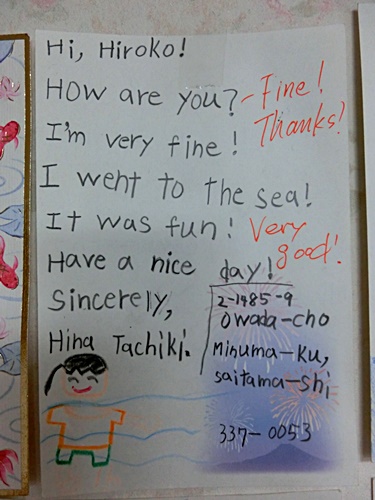 Hi, Hiroko!
How are you? - Fine!
Thanks!
I'm very fine!
I went to the sea!
It was fun! Very
good!
Have a nice day!
Sincerely,
Hina Tachiki.
2-1485-9
Owada-cho
Minuma-Ku,
saitama-shi
337-0053